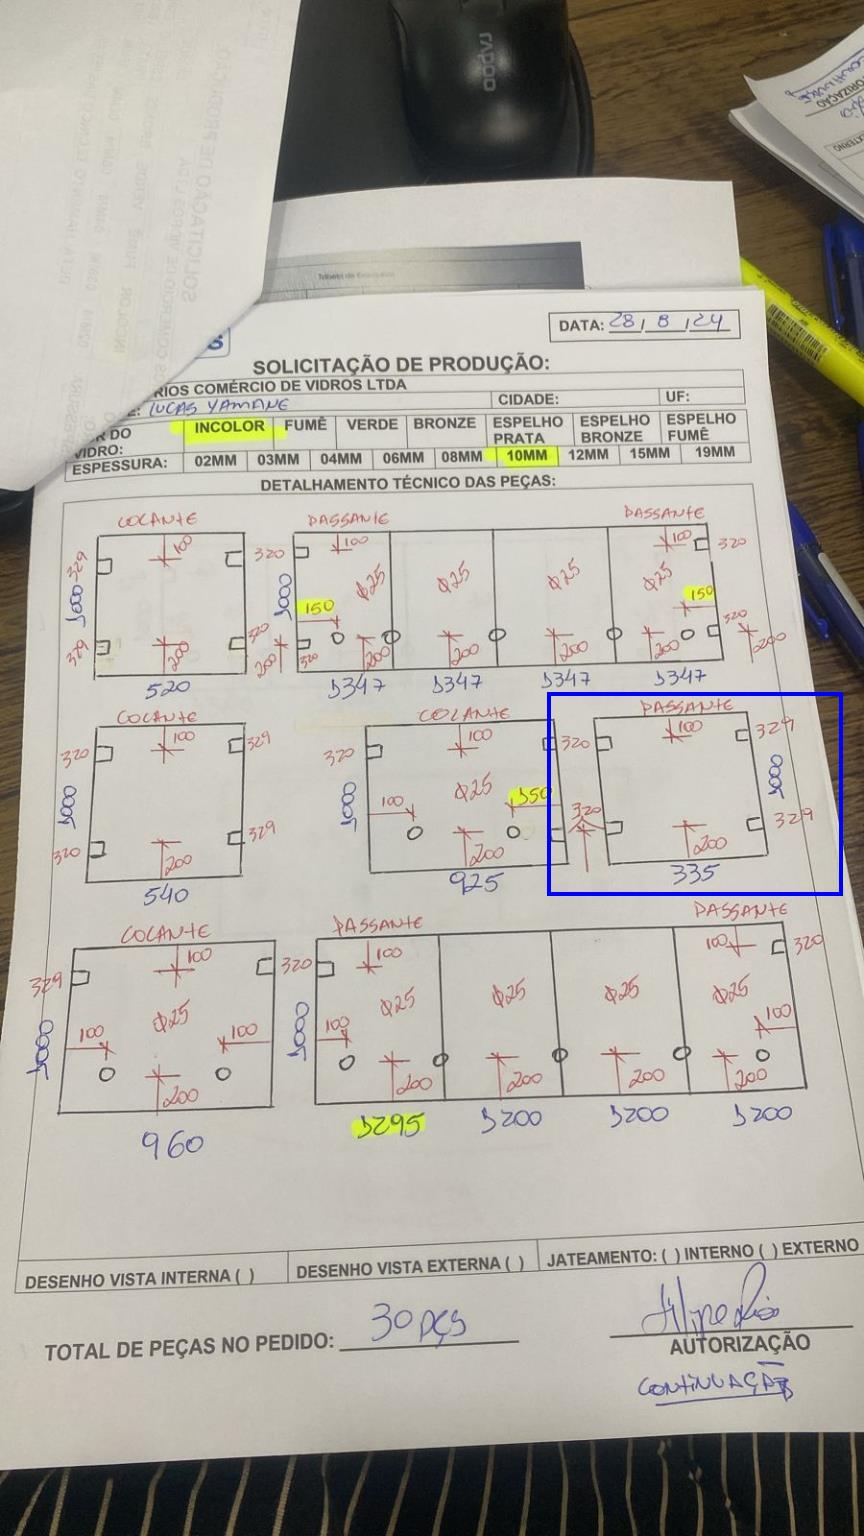 Tabela de
DATA: 28 / 8 / 24
SOLICITAÇÃO DE PRODUÇÃO:
RIOS COMÉRCIO DE VIDROS LTDA
LUCAS YAMANE CIDADE: UF:
DO VIDRO: INCOLOR FUMÊ VERDE BRONZE ESPELHO PRATA ESPELHO BRONZE ESPELHO FUMÊ
ESPESSURA: 02MM 03MM 04MM 06MM 08MM 10MM 12MM 15MM 19MM
DETALHAMENTO TÉCNICO DAS PEÇAS:
COLANTE PASSANTE PASSANTE
329 100 320 100 100 320
1000 1000 Φ25 Φ25 Φ25 Φ25
150 150
329 200 320 200 320 200 200 200 200 320 200
520 1347 1347 1347 1347
COLANTE COLANTE PASSANTE
320 100 329 320 100 320 100 329
1000 1000 Φ25 1000
100 150
320 200 329 200 320 200 329
540 925 335
COLANTE PASSANTE PASSANTE
329 100 320 100 100 320
1000 Φ25 1000 Φ25 Φ25 Φ25 Φ25
100 100 100 100
200 200 200 200 200
960 1295 1200 1200 1200
DESENHO VISTA INTERNA ( ) DESENHO VISTA EXTERNA ( ) JATEAMENTO: ( ) INTERNO ( ) EXTERNO
TOTAL DE PEÇAS NO PEDIDO: 30 pçs
AUTORIZAÇÃO
CONTINUAÇÃO